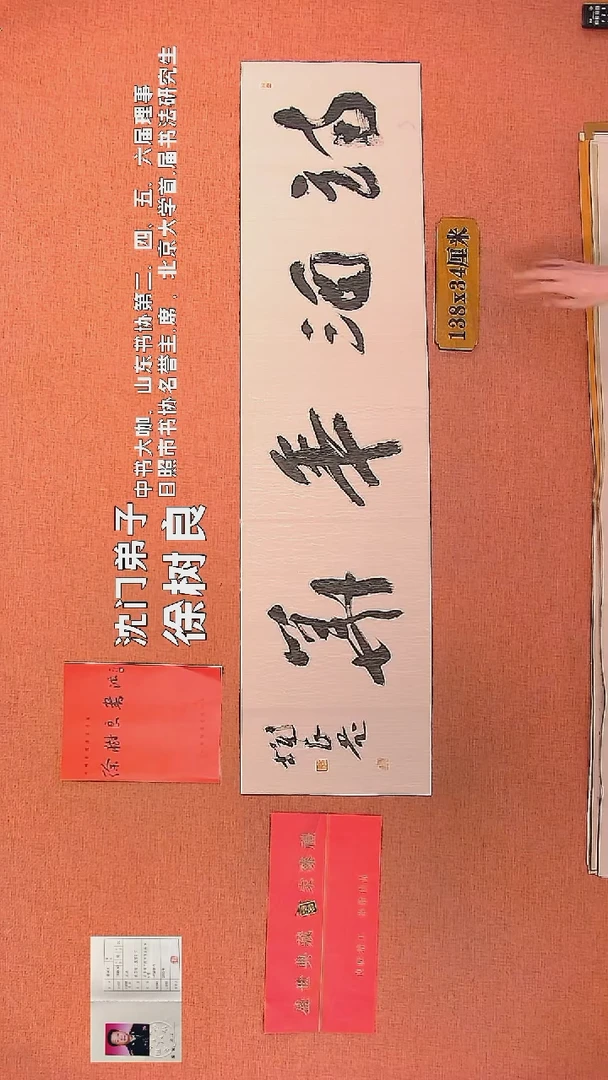 沈门弟子
徐树良
中书大咖，山东书协第二、四、五、六届理事
日照市书协名誉主席，北京大学首届书法研究生
诗酒年华
树良书
138x34厘米
徐树良书法
盛世典藏